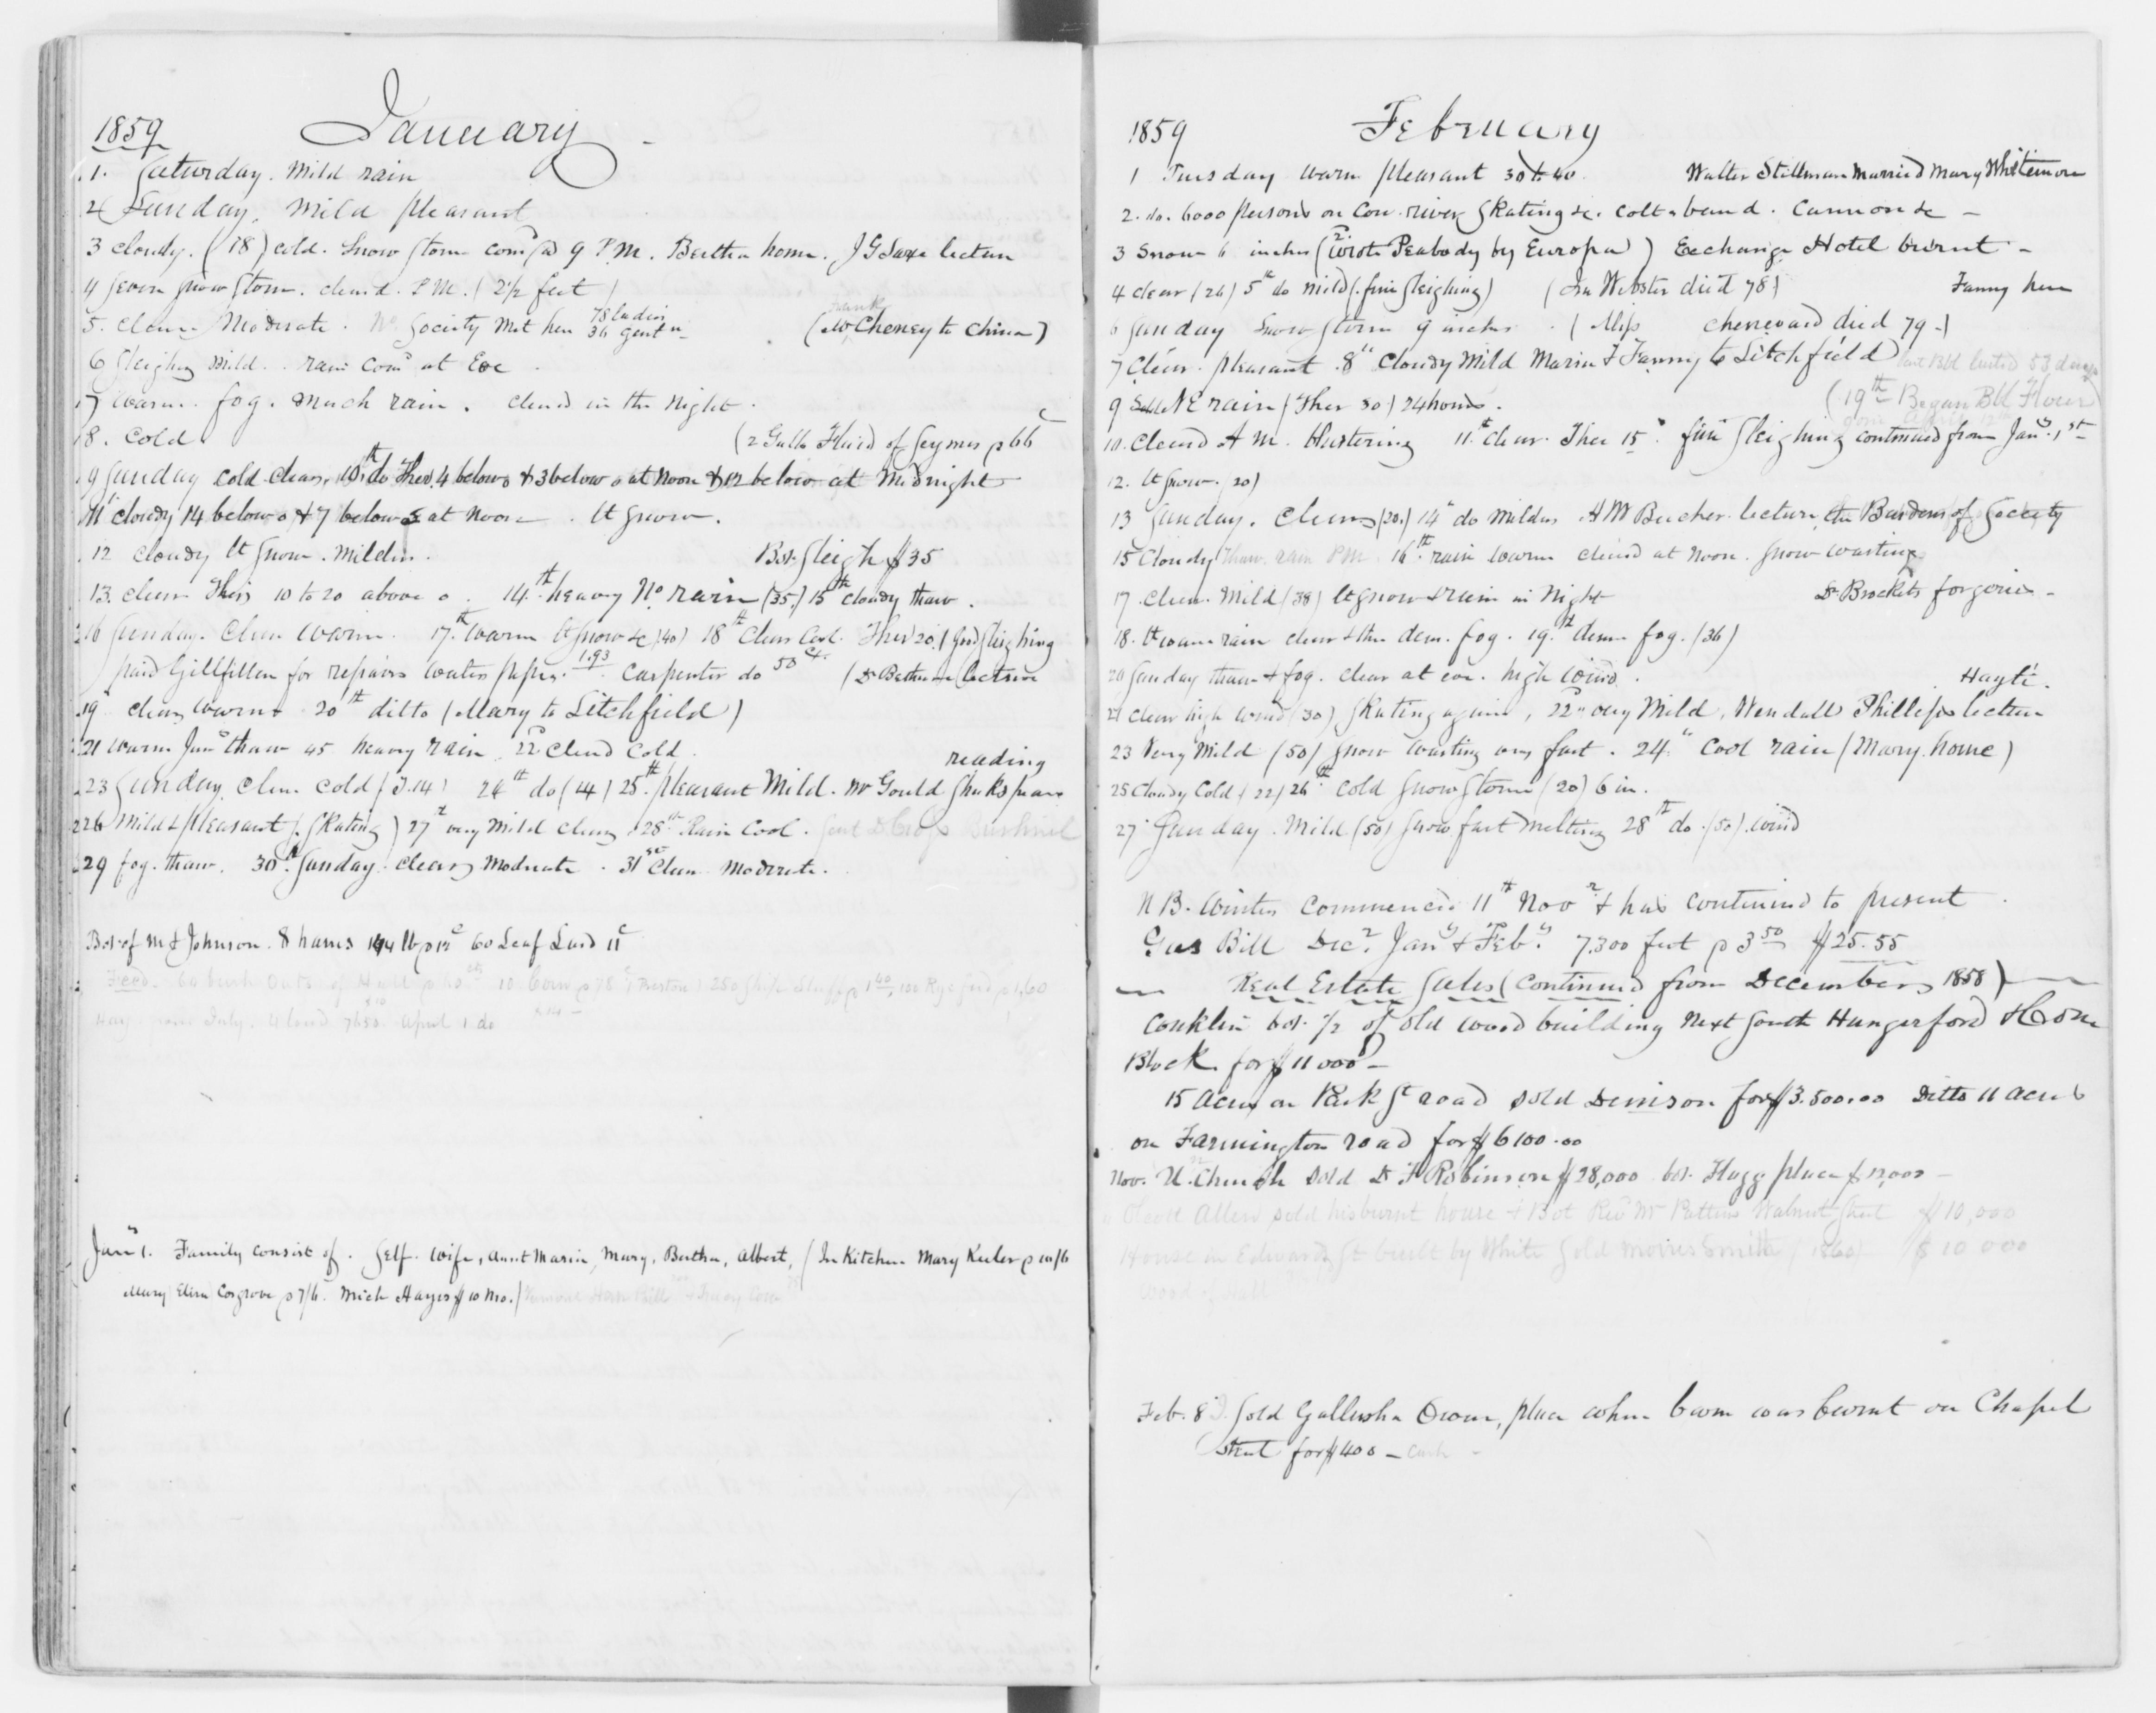 1859 January
1. Saturday. Mild rain
2 Sunday. Mild pleasant
3 cloudy. (18) cold. Snow storm com^d 9 P.M. Bertha home. J G Saxe lecture
4 Severe snow storm. clear'd. P.M. (2½ feet)
5. Clear Moderate. Society Met here 78 ladies 36 gent^n (Frank Mr Cheney to China)
6 Sleighing Mild. rain com^d at Eve
7 warm. fog. Much rain. cleared in the Night.
8. Cold (2 Galls Fluid of Seymes p 66^c
9 Sunday cold clear, 10th do Ther. 4 below 0 & 3 below 0 at Noon & 12 below at Midnight
11 cloudy 14 below 0 & 7 below at noon. lt snow.
12 cloudy lt snow. milder. Bot. Sleigh $35
13. clear Ther. 10 to 20 above 0. 14th heavy No. rain (35.) 15th cloudy thaw.
16 Sunday. Clear warm. 17th Warm lt snow &c (40) 18th Clear Cool. Ther 20. (Good sleighing
paid Gillfillen for repairs water pipes. 1.93 Carpenter do 50 cts. (Dr Bethune lecture
19 clear warm 20th ditto (Mary to Litchfield)
21 warm Jan^y thaw 45 heavy rain. 22^d Clear'd Cold
23 Sunday. Clear cold (T. 14) 24th do (14) 25th pleasant Mild. Mr Gould reading Shakspeare
26 Mild & pleasant (skating) 27th very Mild clear 28th Rain Cool. Bushnel
29 fog. thaw. 30th Sunday. clear Moderate. 31st Clear Moderate.
Bot. of M & Johnson. 8 hams 144 lb p 12^c 60 Leaf Lard 11^c
Feed. 60 bush Oats of Hall
Hay from July. 4 load 7650. April 1 do
Jan^y 1. Family consist of. Self. Wife, Aunt Maria, Mary, Bertha, Albert, (In Kitchen Mary Keeler p 10/6
Mary Eliza Cosgrove p 7/6. Mich Hayes $10 Mo.)
1859 February
1 Tuesday warm pleasant 30 to 40. Walter Stillman Married Mary Whittemore
2. do. 6000 persons on Con. river skating &c. Colts band. Cannon &c -
3 Snow 6 inches (2^d wrote Peabody by Europa) Exchange Hotel burnt -
4 clear (26) 5th do mild (fine sleighing) (Ira Webster died 78) Fanny here
6 Sunday Snow storm 9 inches. (Miss Chenevard died 79 -)
7 Clear. pleasant. 8th Cloudy Mild Maria & Fanny to Litchfield last Bbl lasted 53 days
(19th Began Bbl Flour)
9 NE rain (Ther 30) 24 hours.
10. Cleard A M. blustering 11th clear. Ther 15°. fine sleighing continued from Jan^y 1st
12. lt snow. (20)
13 Sunday. Clear (20.) 14th do milder H W Beecher lecture, the Burdens of Society
15 Cloudy Thaw. rain P M. 16th rain warm cleard at Noon. snow wasting
17 Clear. Mild (38) lt snow & rain in Night Dr Brockets forgeries -
18. lt warm rain clear & then dense fog. 19th dense fog. (36)
20 Sunday thaw & fog. clear at eve. high wind. Hayti.
21 Clear high wind (30) skating again, 22^d very Mild. Wendall Phillips lecture
23 Very Mild (50) snow wasting very fast. 24th Cool rain (Mary home)
25 Cloudy Cold (22) 26th cold snow storm (20) 6 in.
27 Sunday. Mild (50) snow fast melting 28th do. (50) wind
N B. Winter Commenced 11th Nov^r & has continued to present
Gas Bill Dec^r Jan^y & Feb^y. 7.300 feet p 3 50 $25.55
Real Estate Sales (continued from December 1858)
Conklin bot. ½ of old wood building next south Hungerford & Cone
Block for $11000 -
15 acres on Park St road sold Denison for $3.500.00 Ditto 11 acres
on Farmington road for $6100.00
Nov. U. Church sold D F Robinson $28,000 bot. Flagg place $12,000 -
Allen sold his burnt house & Bot Rev^d Mr Pattens Walnut Street $10,000
House in Edwards St built by White sold Morris Smith (1860) $10 000
Wood of Hall
Feb. 8 Sold Gallusha Owen, place where barn was burnt on Chapel
street for $400 - Cash -